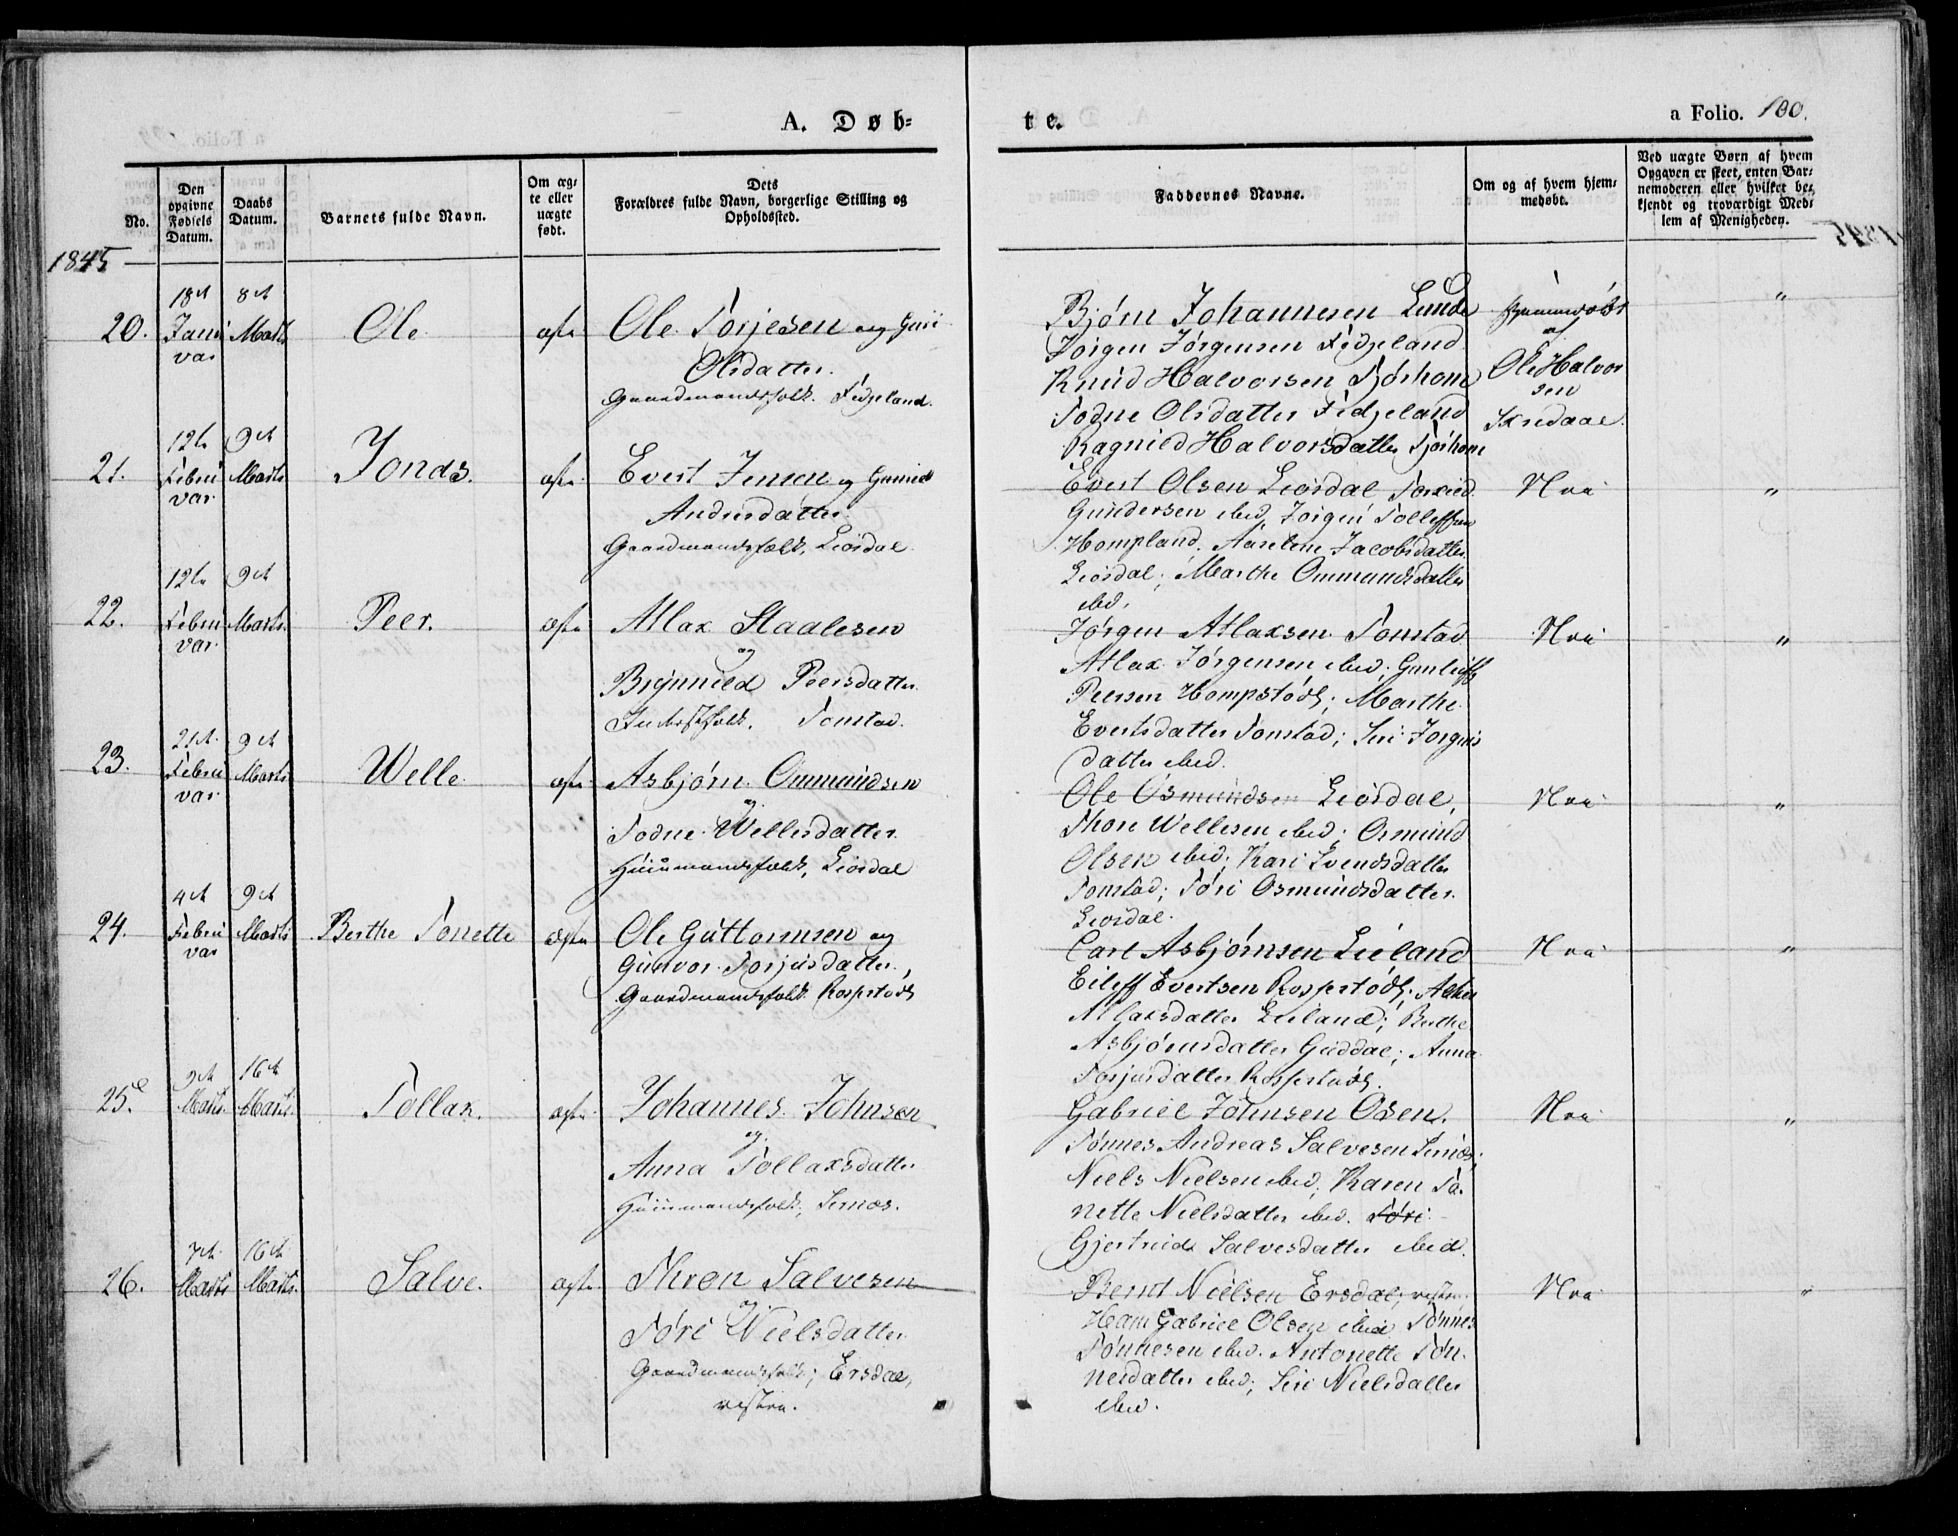 A. Døb-
te.
a Folio. 100.
No.
Den opgivne Fødsels Datum.
Daabs Datum.
Barnets fulde Navn.
Om ægte eller uægte født.
Dets Forældres fulde Navn, borgerlige Stilling og Opholdssted.
Faddernes Navne.
Om og af hvem hjemmedøbt.
Ved uægte Børn af hvem Opgaven er skeet, enten Barnemoderen eller hvilket bekjendt og troværdigt Medlem af Menigheden.
1845
20.
18de Janu
var
8de Marts
Ole
ægte
Ole Torjesen og Guri
Olsdatter.
Gaardmandsfolk. Fidjeland.
Bjørn Johannesen Lunde
Jørgen Jørgensen Fidjeland
Knud Halvorsen Tjørhom
Todne Olsdatter Fidjeland
Ragnild Halvorsdatter Tjørhom
hjemmedøbt
af
Ole Halvor
sen
Skredaae.
"
21.
12te Febru
var
9de Marts
Jonas.
ægte
Evert Jensen og Gunild
Andersdatter.
Gaardmandsfolk, Liosdal.
Evert Olsen Liosdal, Torkild
Gundersen ibid, Jørgen Tolleffsen
Hompland, Aaselene Jacobsdatter
Liosdal; Marthe Ommundsdatter
ibid.
Nei
"
22.
12te Febru
var.
9de Marts.
Peer.
ægte
Atlax Staalesen
og
Brynild Peersdatter
Inderstfolk, Tonstad.
Jørgen Atlaxsen Tonstad
Atlax Jørgensen ibid; Gunleiff
Peersen Hompstødt; Marthe
Evertsdatter Tonstad; Siri Jørgens
datter ibid.
Nei
"
23.
21de Febru
var
9de Marts
Welle
ægte
Asbjørn Ommundsen
og
Todne Wellesdatter
Huusmandsfolk, Liosdal
Ole Osmundsen Liosdal,
Thore Wellesen ibid; Osmund
Olsen ibid; Kari Svendsdatter
Tonstad; Tøri Osmundsdatter
Liosdal.
Nei
"
24.
4de Febru
var
9de Marts
Berthe Tonette
ægte
Ole Guttormsen og
Gunvor Torjusdatter,
Gaardmandsfolk Rosserstødt
Carl Asbjørnsen Lieland
Eileff Evertsen Rosserstødt;
Atlaxsdatter Lieland; Berthe
Asbjørnsdatter Guddal; Anna
Torjusdatter Rosserstødt.
Nei
"
25.
9de Marts.
16de Marts.
Tollax.
ægte
Johannes Johnsen
og
Anna Tollaxsdatter
Huusmandsfolk, Sirnæs.
Gabriel Johnsen Osen.
Tønnes Andreas Salvesen Sirnæs;
Niels Nielsen ibid; Karen To-
nette Nielsdatter ibid. Tøri
Gjertrude Salvesdatter ibid.
Nei
"
26.
7de Marts
16de Marts.
Salve.
ægte
Thron Salvesen
og
Tøri Nielsdatter
Gaardmandsfolk; Ersdal,
vestre.
Bernt Nielsen Ersdal; vestre
Hans Gabriel Olsen ibid, Tønnes
Tønnesen ibid. Antonette Tøn-
nesdatter ibid; Siri Nielsdatter
ibid.
Nei
"